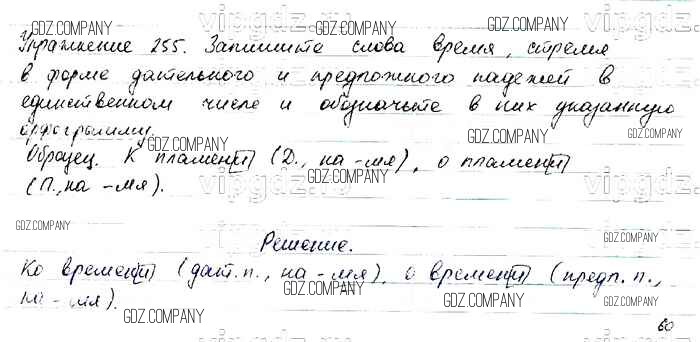 GDZ.COMPANY GDZ.COMPANY GDZ.COMPANY
Упражнение 255. Запишите слова время, стремя
GDZ.COMPANY
в форме дательного и предложного падежей в
единственном числе и обозначьте в них указанную
орфограмму.
GDZ.COMPANY GDZ.COMPANY
Образец. К пламени (Д., на -мя), о пламени
GDZ.COMPANY
(П., на -мя).
vipgdz.ru vipgdz.ru
GDZ.COMPANY GDZ.COMPANY GDZ.COMPANY
Решение.
Ко времени (дат. п., на -мя), о времени (предл. п.,
GDZ.COMPANY GDZ.COMPANY
на -мя).
GDZ.COMPANY GDZ.COMPANY
60